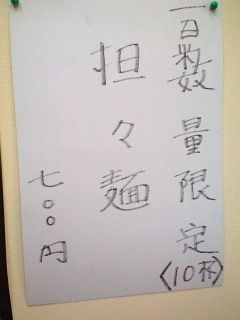 一日数量限定
(10杯)
担々麺
七〇〇円